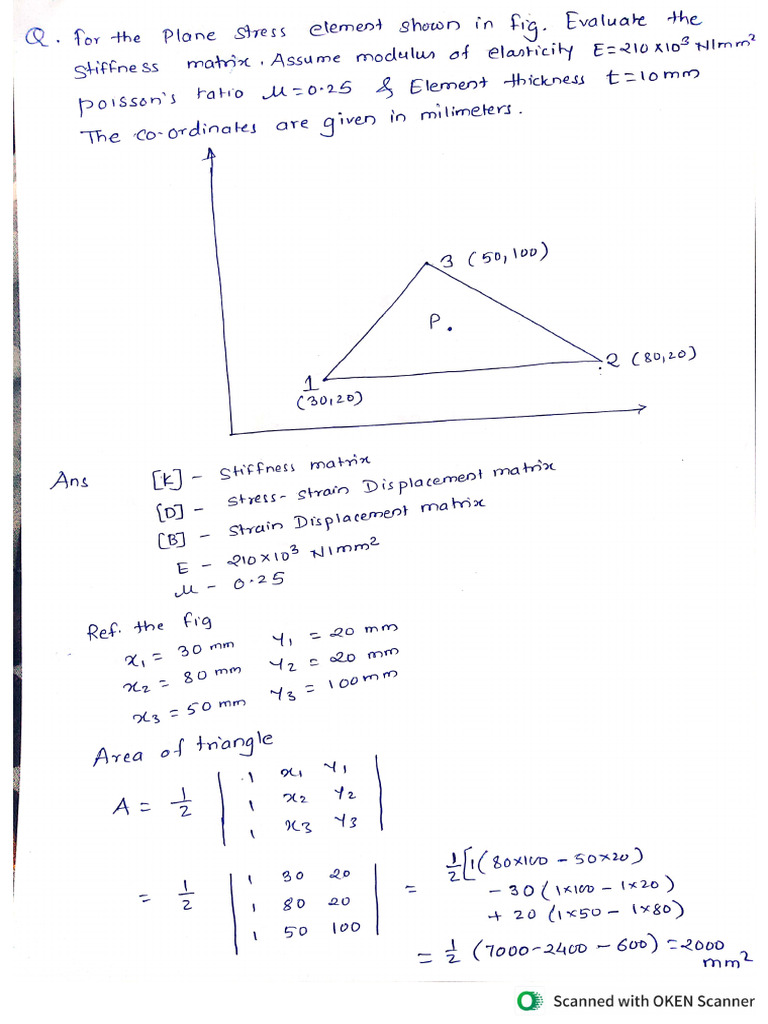 Q. For the Plane Stress element shown in fig. Evaluate the
Stiffness matrix. Assume modulus of elasticity E=210×10³ N/mm²
Poisson's ratio μ=0.25 & Element thickness t=10mm
The co-ordinates are given in milimeters.
3 (50,100)
P.
2 (80,20)
1
(30,20)
Ans [K] - Stiffness matrix
[D] - Stress-Strain Displacement matrix
[B] - Strain Displacement matrix
E - 210×10³ N/mm²
μ - 0.25
Ref. the fig
x₁ = 30 mm y₁ = 20 mm
x₂ = 80 mm y₂ = 20 mm
x₃ = 50 mm y₃ = 100mm
Area of triangle
A = 1/2 | 1 x₁ y₁
1 x₂ y₂
1 x₃ y₃ |
= 1/2 | 1 30 20
1 80 20
1 50 100 |
= 1/2 [1(80×100 - 50×20)
- 30(1×100 - 1×20)
+ 20 (1×50 - 1×80)
= 1/2 (7000-2400-600) = 2000
mm²
Scanned with OKEN Scanner